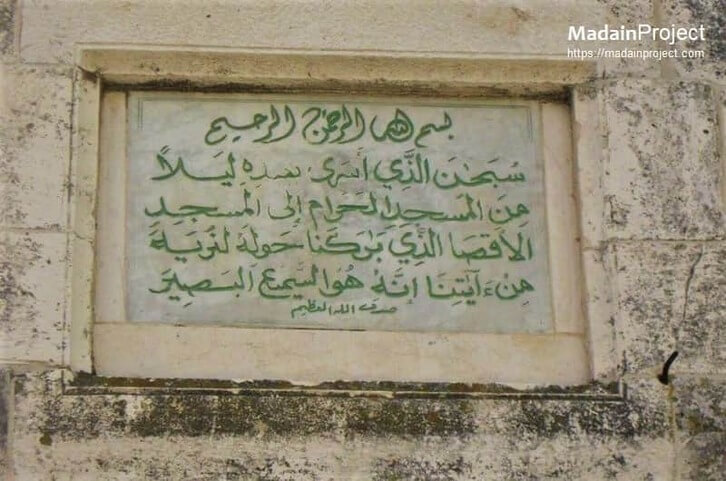 MadainProject
https://madainproject.com
بسم الله الرحمن الرحيم
سُبحٰن الَّذِي أسرى بعبدهِ لَيلًا
مِنَ المَسجدِ الحَرامِ إلى المَسجدِ
الأقصا الَّذِي بَٰركنا حَولهُ لنُريهُ
مِن ءايٰتِنا إنَّهُ هُوَ السَّمِيعُ البَصِيرُ
صدق الله العظيم